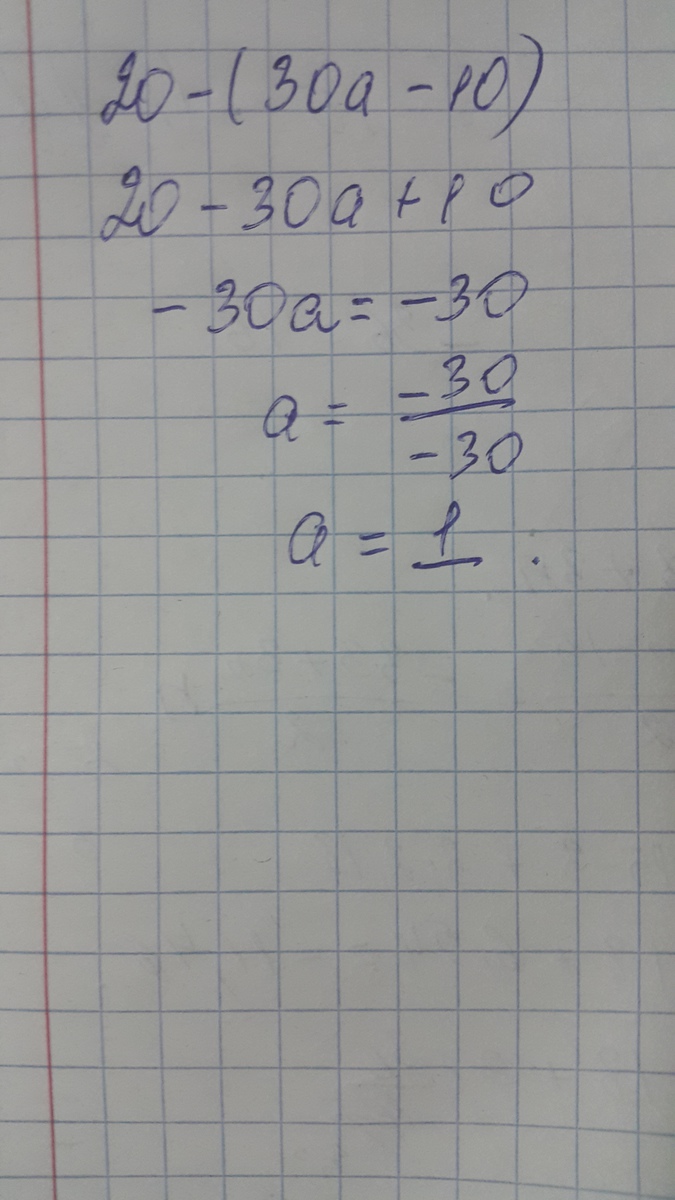 20 - (30a - 10)
20 - 30a + 10
- 30a = -30
a = -30 / -30
a = 1 .